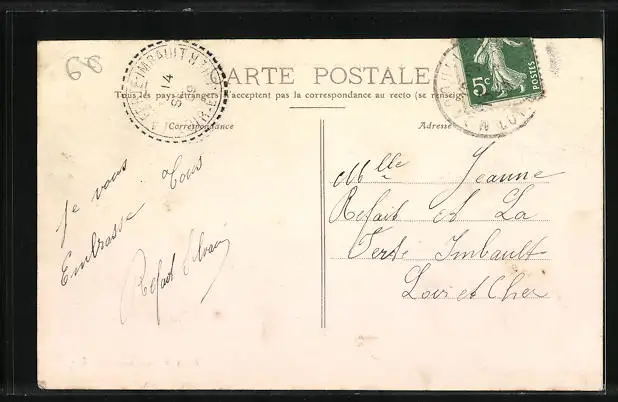 66
CARTE POSTALE
Tous les pays étrangers n'acceptent pas la correspondance au recto (se renseign
Correspondance
Adresse
14
5c
POSTES
Je vous
Embrasse Tous
Refait Silvain
Mlle Jeanne
Refait et La
Ferté Imbault
Loir et Cher